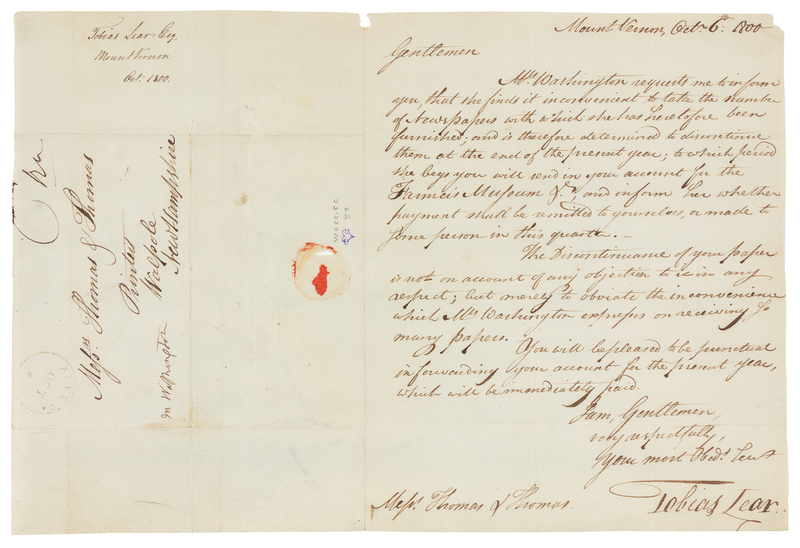 Tobias Lear Esq.
Mount Vernon
Oct. 1800.
Messrs Thomas & Thomas
Printers
Walpole
New Hampshire
Mount Vernon, Octr. 6th. 1800
Gentlemen
Mrs. Washington requests me to inform
you, that she finds it inconvenient to take the number
of Newspapers with which she has heretofore been
furnished; and is therefore determined to discontinue
them at the end of the present year; to which period
she begs you will send in your account for the
Farmer's Museum &c., and inform her whether
payment shall be remitted to yourselves, or made to
some person in this quarter. —
The Discontinuance of your paper
is not on account of any objection to it in any
respect; but merely to obviate the inconvenience
which Mrs Washington expresses on receiving so
many papers. You will be pleased to be punctual
in forwarding your account for the present year,
which will be immediately paid.
I am, Gentlemen,
very respectfully,
your most Obedt. Servt
Tobias Lear.
Messrs. Thomas & Thomas.